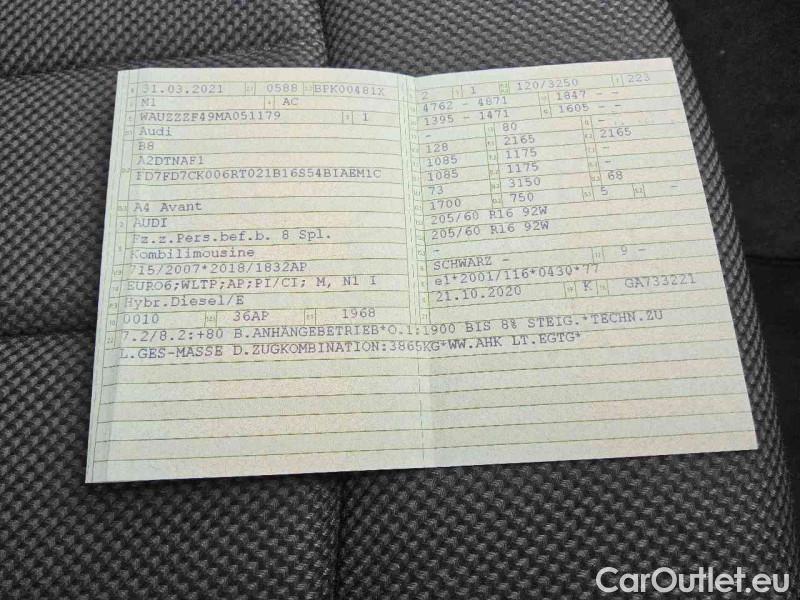 31.03.2021 0588 BPK00481X
M1 AC
WAUZZZF49MA051179 1
Audi
B8
A2DTNAF1
FD7FD7CK006RT021B16S54BIAEM1C
A4 Avant
AUDI
Fz.z.Pers.bef.b. 8 Spl.
Kombilimousine
715/2007*2018/1832AP
EURO6;WLTP;AP;PI/CI; M, N1 I
Hybr.Diesel/E
0010 36AP 1968
7.2/8.2:+80 B.ANHÄNGEBETRIEB*O.1:1900 BIS 8% STEIG.*TECHN.ZU
L.GES-MASSE D.ZUGKOMBINATION:3865KG*WW.AHK LT.EGTG*
2 1 120/3250 223
4762 - 4871 1847 - -
1395 - 1471 1605 - -
- 80
128 2165 2165
1085 1175 -
1085 1175 -
73 3150 68
1700 750 5 -
205/60 R16 92W
205/60 R16 92W
-
-
SCHWARZ - 9 -
e1*2001/116*0430*77
21.10.2020 K GA733221
CarOutlet.eu